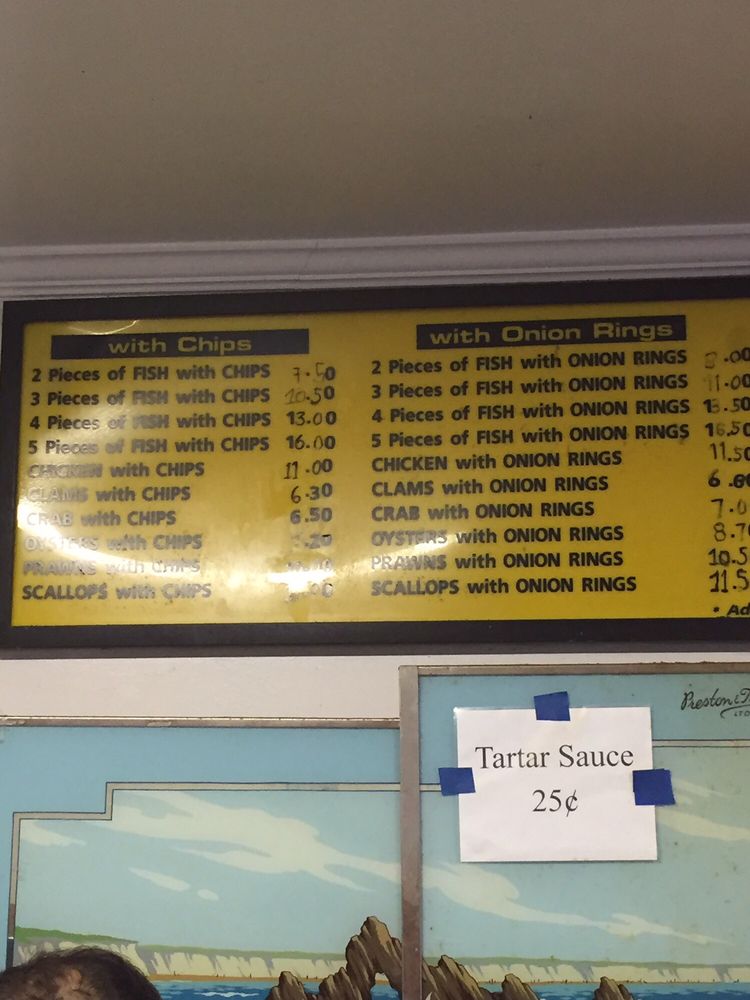 with Chips
2 Pieces of FISH with CHIPS 7.50
3 Pieces of FISH with CHIPS 10.50
4 Pieces of FISH with CHIPS 13.00
5 Pieces of FISH with CHIPS 16.00
CHICKEN with CHIPS 11.00
CLAMS with CHIPS 6.30
CRAB with CHIPS 6.50
OYSTERS with CHIPS
PRAWNS with CHIPS
SCALLOPS with CHIPS
with Onion Rings
2 Pieces of FISH with ONION RINGS
3 Pieces of FISH with ONION RINGS 11.00
4 Pieces of FISH with ONION RINGS 13.50
5 Pieces of FISH with ONION RINGS 16.50
CHICKEN with ONION RINGS 11.50
CLAMS with ONION RINGS
CRAB with ONION RINGS 7.0
OYSTERS with ONION RINGS 8.7
PRAWNS with ONION RINGS 10.5
SCALLOPS with ONION RINGS 11.5
• Ad
Preston &
LTD
Tartar Sauce
25¢